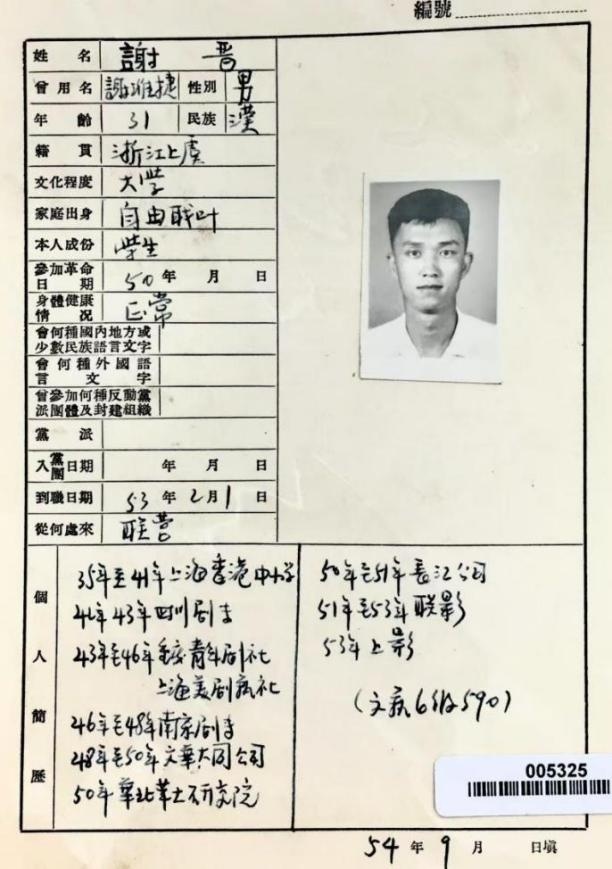 編號
姓名 謝晋
曾用名 謝維捷 性別 男
年齡 31 民族 漢
籍貫 浙江上虞
文化程度 大学
家庭出身 自由职叶
本人成份 学生
參加革命日期 50年 月 日
身體健康情況 正常
會何種國內地方或少數民族語言文字
會何種外國語言文字
曾參加何種反動黨派團體及封建組織
黨派
入黨團日期 年 月 日
到職日期 53年2月1日
從何處來 联营
個人簡歷
35年至41年上海香港中小学
41年43年四川剧专
43年至46年重庆青年剧社
上海美剧社
46年至48年南京剧专
48年至50年文华大同公司
50年华北革大研究院
50年至51年長江公司
51年至53年联影
53年上影
(文薪6级590)
005325
54年9月 日填